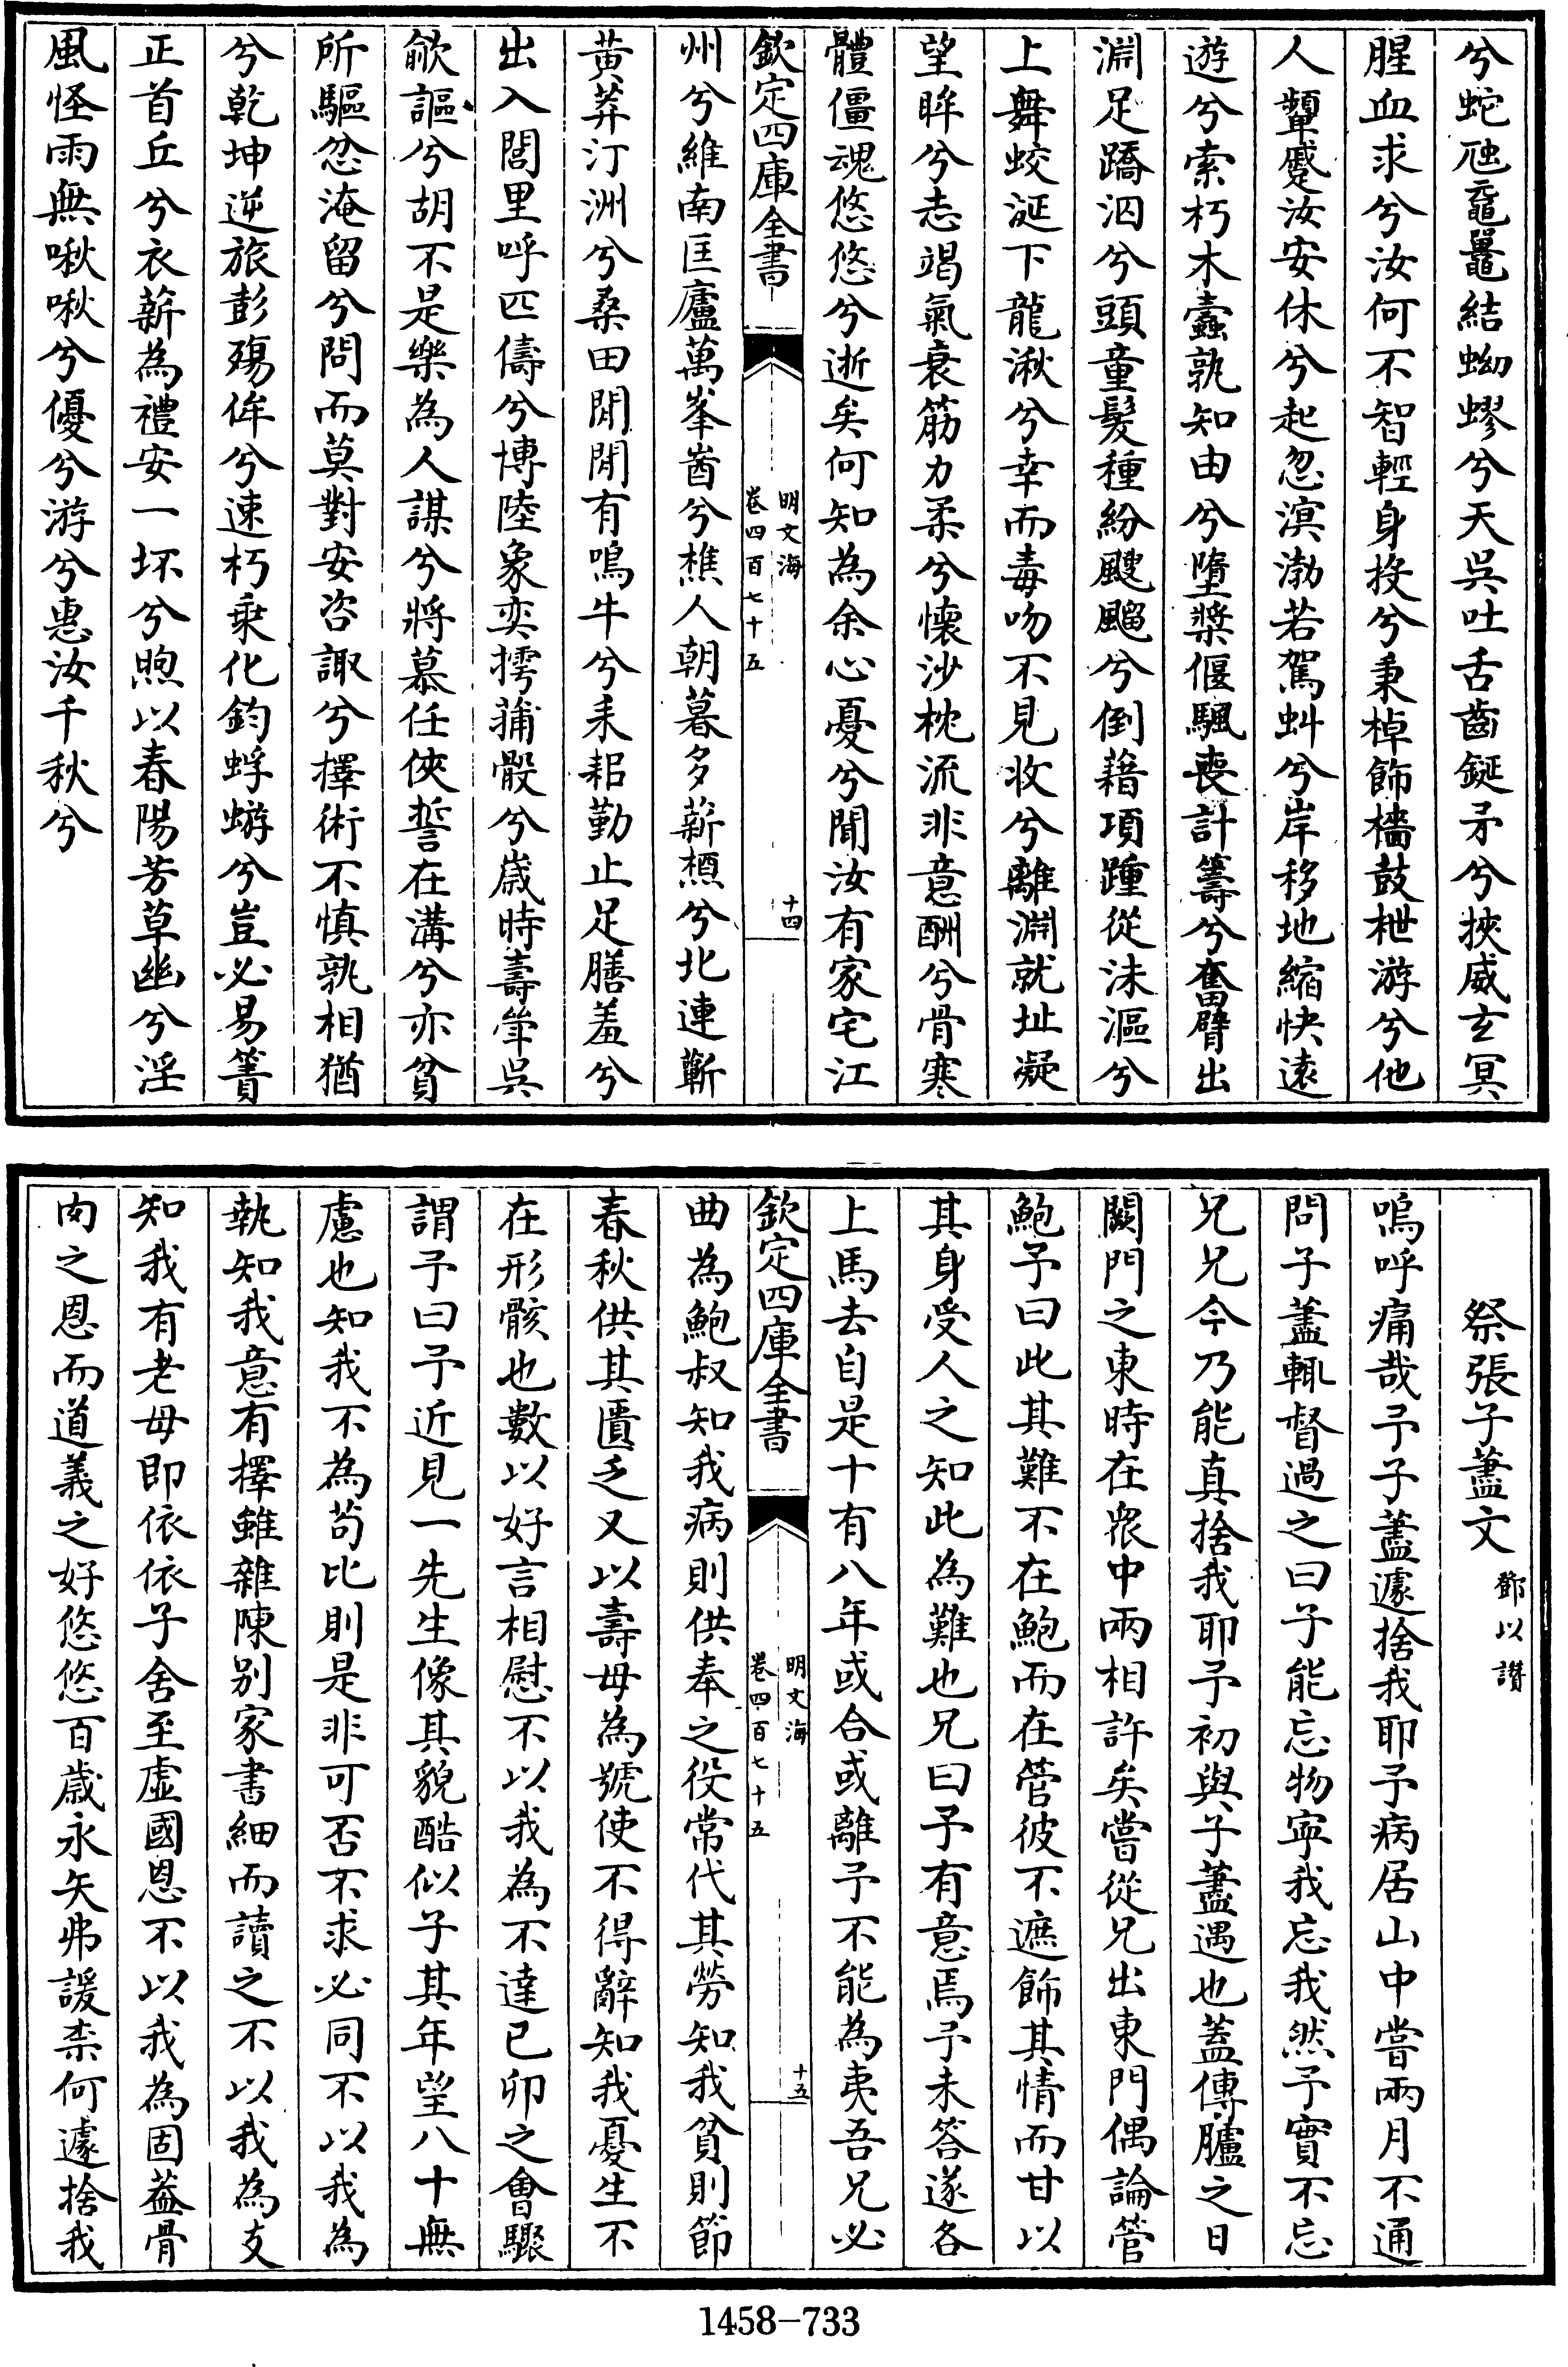 兮蛇虺黿鼉結蚴蟉兮天吳吐舌齒鋋矛兮挾威玄冥
腥血求兮汝何不智輕身投兮秉棹飾檣鼓枻游兮他
人顰蹙汝安休兮起忽溟渤若駕虯兮岸移地縮快遠
遊兮索朽木蠹孰知由兮墮槳偃颿喪計籌兮奮臂出
淵足蹻泅兮頭童髮種紛颼飀兮倒藉項踵從沫漚兮
上舞蛟涎下龍湫兮幸而毒吻不見收兮離淵就址凝
望眸兮志竭氣衰筋力柔兮懷沙枕流非意酬兮骨寒
體僵魂悠悠兮逝矣何知為余心憂兮聞汝有家宅江
欽定四庫全書
明文海
卷四百七十五
十四
州兮維南匡廬萬峯酋兮樵人朝暮多薪槱兮北連蘄
黄莽汀洲兮桑田閒閒有鳴牛兮耒耜勤止足膳羞兮
出入閭里呼匹儔兮博陸象奕摴蒱骰兮歲時壽筵吳
歈謳兮胡不是樂為人謀兮將慕任俠誓在溝兮亦貧
所驅忿淹留兮問而莫對安咨諏兮擇術不慎孰相猶
兮乾坤逆旅彭殤侔兮速朽乗化鈞蜉蝣兮豈必易簀
正首丘兮衣薪為禮安一坏兮煦以春陽芳草幽兮淫
風怪雨無啾啾兮優兮游兮惠汝千秋兮
祭張子藎文
鄧以讚
嗚呼痛哉予子藎遽捨我耶予病居山中嘗兩月不通
問子藎輒督過之曰子能忘物寧我忘我然予實不忘
兄兄今乃能真捨我耶予初與子藎遇也蓋傳臚之日
闕門之東時在衆中兩相許矣嘗從兄出東門偶論管
鮑予曰此其難不在鮑而在管彼不遮飾其情而甘以
其身受人之知此為難也兄曰予有意焉予未答遂各
上馬去自是十有八年或合或離予不能為夷吾兄必
欽定四庫全書
明文海
卷四百七十五
十五
曲為鮑叔知我病則供奉之役常代其勞知我貧則節
春秋供其匱乏又以壽母為號使不得辭知我憂生不
在形骸也數以好言相慰不以我為不達已卯之會驟
謂予曰予近見一先生像其貌酷似子其年望八十無
慮也知我不為苟比則是非可否不求必同不以我為
執知我意有擇雖雜陳别家書細而讀之不以我為支
知我有老母即依依子舍至虚國恩不以我為固葢骨
肉之恩而道義之好悠悠百歲永矢弗諼柰何遽捨我
1458-733